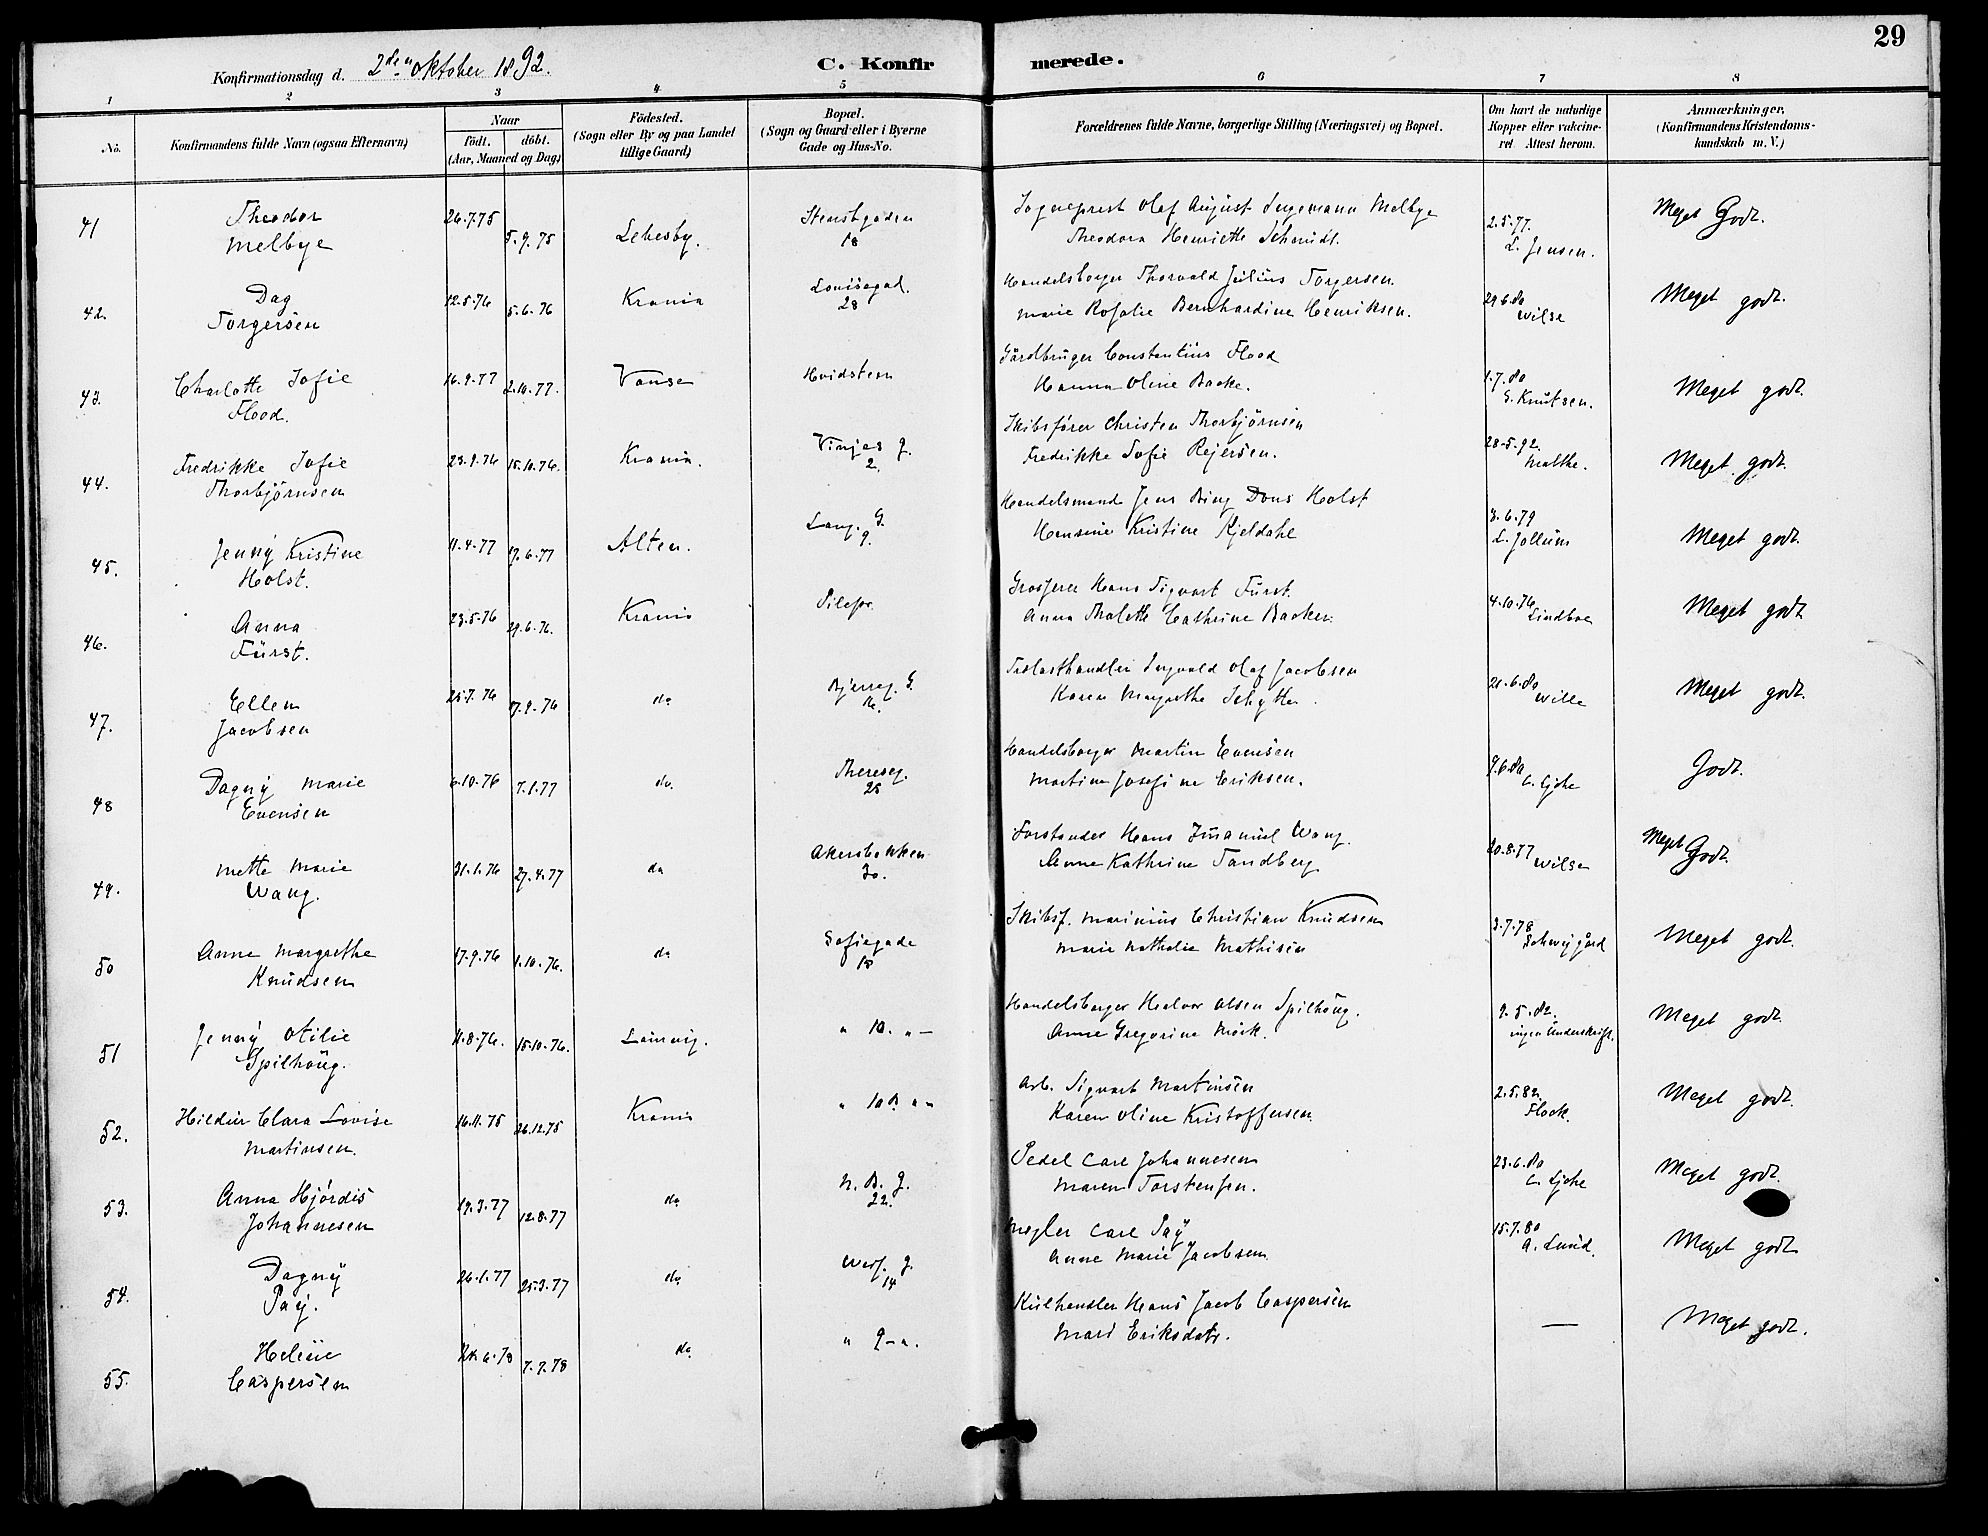 29
Konfirmationsdag d. 2den Oktober 1892.
C. Konfirmerede.
1 2 3 4 5 6 7 8
No.
Konfirmandens fulde Navn (ogsaa Efternavn)
Naar
födt. döbt.
(Aar, Maaned og Dag)
Födested.
(Sogn eller By og paa Landet
tillige Gaard)
Bopæl.
(Sogn og Gaard eller i Byerne
Gade og Hus-No.
Forældrenes fulde Navne, borgerlige Stilling (Næringsvei) og Bopæl.
Om havt de naturlige
Kopper eller vakcine-
ret Attest herom.
Anmærkninger,
(Konfirmandens Kristendoms-
kundskab m. V.)
41 Theodor 26.7.75 5.9.75 Lebesby. Stensbgaden Sogneprest Olaf August Ingemann Melbye 2.5.77. Meget Godt.
Melbye 18 Theodora Henriette Schmidt. L. Jensen.
42. Dag 12.5.76 5.6.76 Krania Louisegad. Handelsborger Thorvald Julius Torgersen. 29.6.80 Meget godt.
Torgersen 28 Marie Rosalie Bernhardine Henriksen. Wilse
43. Charlotte Sofie 16.9.77 2.10.77. Vanse Hvidsten Gårdbruger Constantius Flood 1.7.80 Meget godt.
Flood. Hanna Oline Backe. S. Knutsen.
44. Fredrikke Sofie 23.9.76 15.10.76. Krania. Vinjes g. Skibsfører Christen Thorbjörnsen 28-5.92. Meget godt.
Thorbjörnsen 2. Fredrikke Sofie Rejersen. Malthe.
45. Jenny Kristine 11.4.77 17.6.77 Alten. Lang. G. Handelsmand Jens Bing Dons Holst 3.6.79 Meget godt.
Holst. 9. Hansine Kristine Kjeldahl L. Jollum
46. Anna 23.5.76 29.6.76. Krania Pilestr. Grosserer Hans Sigvart Fürst. 4.10.76 Meget godt
Fürst. Anna Thalette Cathrine Backer. Lindboe
47. Ellen 25.7.76 17.9.76 do Bjerreg. G. Trælasthandler Ingvald Olaf Jacobsen 21.6.80 Meget godt.
Jacobsen 16. Karen Margrethe Schytte. Wille
48 Dagny Marie 6.10.76 7.1.77 do. Thereseg. Handelsborger Martin Evensen 9.6.80 Godt.
Evensen 25 Martine Josefine Eriksen. C. Gjche
49. Mette Marie 31.1.76 27.4.77 do Akersbakken Forstander Hans Imanuel Wang. 20.8.77 Meget Godt.
Wang. 30. Anne Kathrine Sandberg Wilse
50 Anne Margrethe 17.9.76 1.10.76. do Sofiegade Skibsf. Marinius Christian Knudsen 3.7.78 Meget godt.
Knudsen 18 Marie Nathalie Mathisen Schweigård
51 Jenny Otilie 11.8.76. 15.10.76. Laurvig. " 10. " — Handelsborger Halvor Olsen Spilhaug. 9.5.82. Meget godt.
Spilhaug. Anne Gregorine Mörk. ingen Underskrift.
52. Hildur Clara Lovise 16.11.75 26.12.75 Krania " 10 B. " " Arb. Sigvart Martinsen 2.5.82. Meget godt.
Martinsen. Karen Oline Kristoffersen. Flock.
53. Anna Hjördis 19.3.77 12.8.77 do N. B. g. Pedel Carl Johannesen 23.6.80 Meget godt.
Johannesen 22. Maren Torstensen. C. Gjche
54. Dagny 26.1.77 25.3.77 do Werg. g. Megler Carl Pay 15.7.80 Meget godt
Pay. 14 Anne Marie Jacobsen. A. Lund.
55. Helene 6.78 7.7.78 do. " 9 — ". Kulhandler Hans Jacob Caspersen — Meget godt.
Caspersen Mari Eriksdatr.